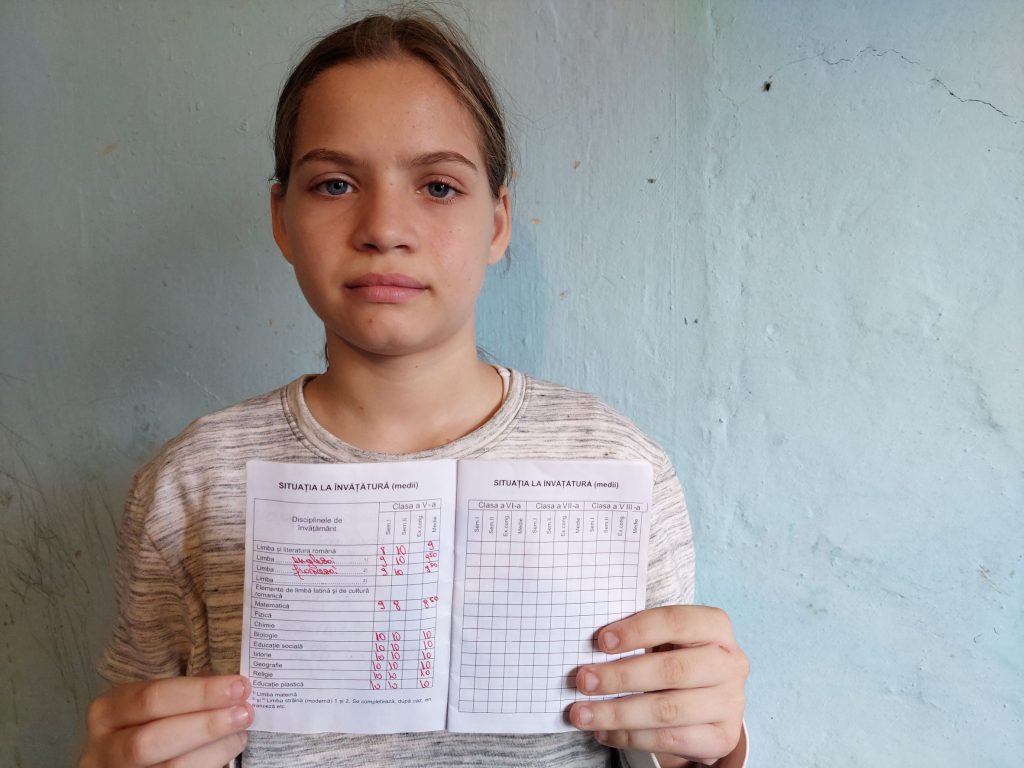 SITUAȚIA LA ÎNVĂȚĂTURĂ (medii)
Disciplinele de învățământ
Clasa a V-a
Sem.I Sem.II Ex.cong. Medie
Limba și literatura română 8 10 9
Limba engleză 1) 9 10 950
Limba franceză 2) 9 10 950
Limba 3)
Elemente de limbă latină și de cultură
romanică
Matematică 9 8 850
Fizică
Chimie
Biologie 10 10 10
Educație socială 10 10 10
Istorie 10 10 10
Geografie 10 10 10
Religie 10 10 10
Educație plastică 10 10 10
Limba maternă
și Limba străină (modernă) 1 și 2. Se completează, după caz, en
franceză etc.
SITUAȚIA LA ÎNVĂȚATURA (medii)
Clasa a VI-a Clasa a VII-a Clasa a VIII-a
Sem.I Sem.II Ex.cong. Medie Sem.I Sem.II Ex.cong. Medie Sem.I Sem.II Ex.cong. Medie